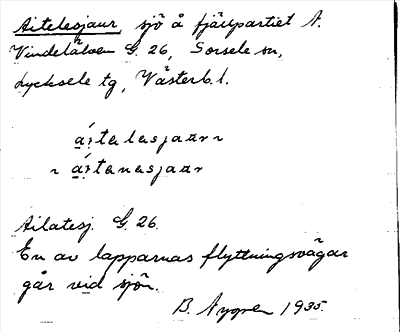 Aitelesjaur, sjö å fjällpartiet N.
Vindelälven G. 26, Sorsele sn,
Lycksele tg, Västerb. l.
a̱i̯talasjaur ~
~ a̱i̯tanasjaur
Ailatesj. G. 26.
En av lapparnas flyttningsvägar
går vid sjön.
B. Nygren 1935.